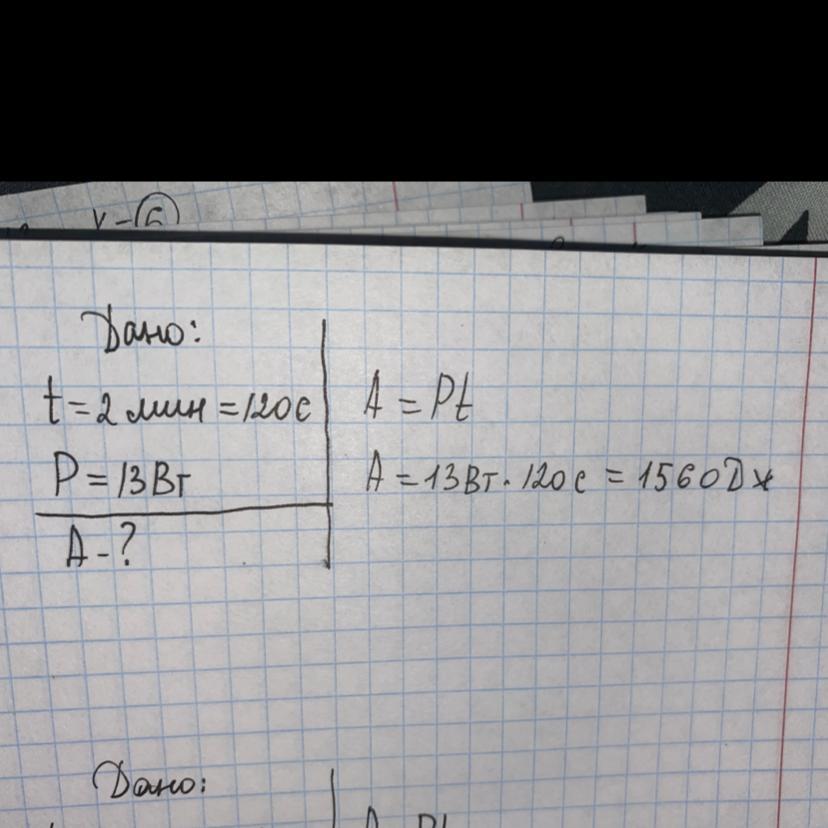 Дано:
t = 2 мин = 120 с
P = 13 Вт
A - ?
A = Pt
A = 13 Вт · 120 с = 1560 Дж
Дано: